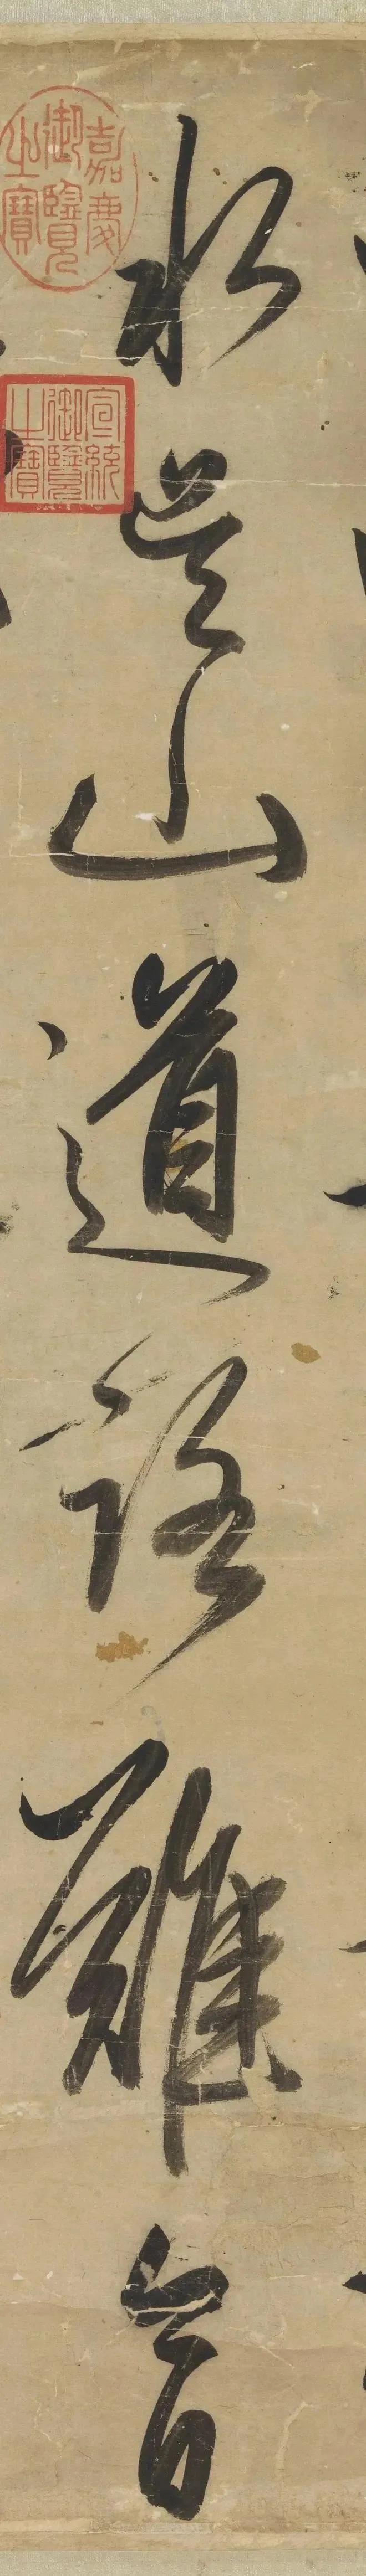 水吳山道路難
嘉慶御覽之寶
宣統御覽之寶